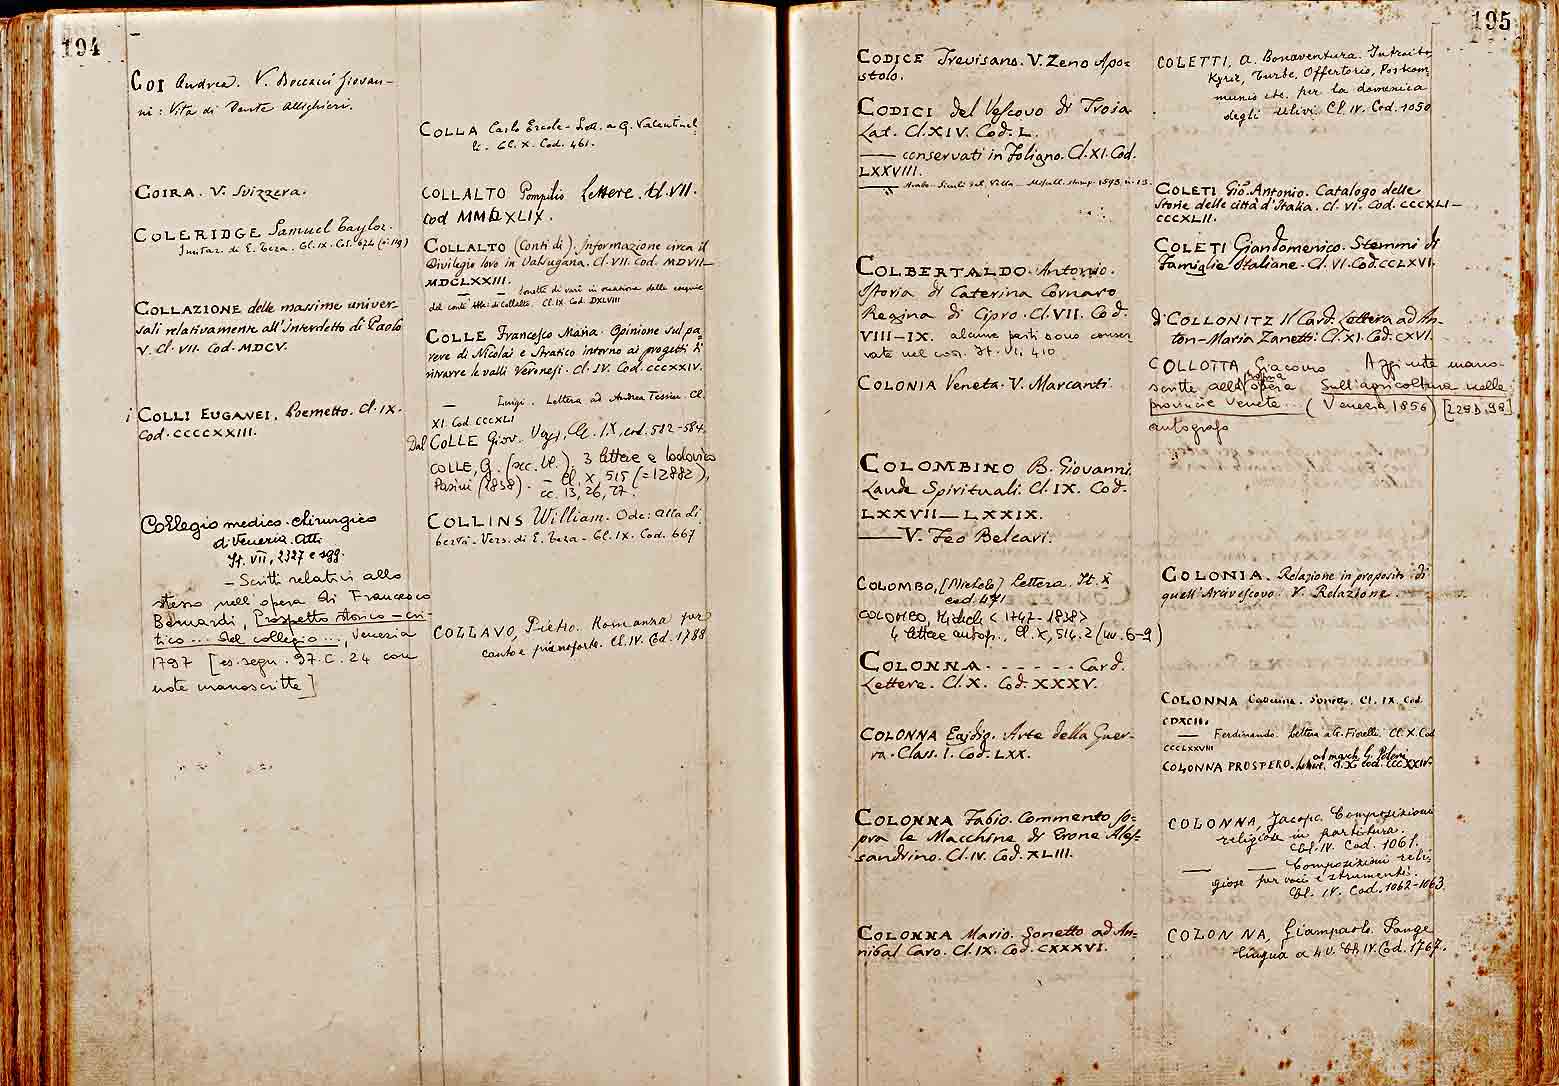 194
COI Andrea. V. Boccacci Giovan-
ni: Vita di Dante Allighieri.
COIRA. V. Svizzera.
COLERIDGE Samuel Taylor.
Imitaz. di E. Teza. Cl. IX. Cod. 624 (n° 119)
COLLAZIONE delle massime univer-
sali relativamente all'interdetto di Paolo
V. Cl. VII. Cod. MDCV.
COLLI EUGANEI. Poemetto. Cl. IX.
Cod. CCCCXXIII.
Collegio medico-chirurgico
di Venezia. Atti.
It. VII, 2327 e sgg.
— Scritti relativi allo
stesso nell'opera di Francesco
Bernardi, Prospetto storico-cri-
tico ... del collegio ..., Venezia
1797 [es. segn. 97. C. 24 con
note manoscritte]
COLLA Carlo Ercole - Lett. a G. Valentinel-
li. Cl. X. Cod. 461.
COLLALTO Pompilio Lettere. Cl. VII.
Cod MMDXLIX.
COLLALTO (Conti di). Informazione circa il
Privilegio loro in Valsugana. Cl. VII. Cod. MDVII—
MDCLXXIII.
— — Sonetti di varii in occasione delle esequie
del conte di Collalto. Cl. IX. Cod. DXLVIII
COLLE Francesco Maria. Opinione sul pa-
rere di Nicolai e Stratico intorno ai progetti di
ritrarre le valli Veronesi. Cl. IV. Cod. CCCXXIV.
— Luigi. Lettera ad Andrea Tessier. Cl.
XI Cod CCCXLI
Dal COLLE Giov. Cl. IX, cod. 582-584.
COLLE, G. (sec. XIX), 3 lettere a Lodovico
Pasini (1838). — Cl. X, 515 (=12882),
cc. 13, 26, 27.
COLLINS William. Ode: Alla Li-
bertà - Vers. di E. Teza - Cl. IX. Cod. 667
COLLAVO, Pietro. Romanza per
canto e pianoforte. Cl. IV. Cod. 1788
195
CODICE Trevisano. V. Zeno Apo=
stolo.
CODICI del Vescovo di Troia
Lat. Cl. XIV. Cod. L.
— conservati in Foligno. Cl. XI. Cod.
LXXVIII.
COLBERTALDO Antonio.
Istoria di Caterina Cornaro
Regina di Cipro. Cl. VII. Cod.
VIII—IX. alcune parti sono conser
vate nel cod. It. VI, 410
COLONIA Veneta. V. Marcanti.
COLOMBINO B. Giovanni.
Laude Spirituali. Cl. IX. Cod.
LXXVII—LXXIX.
— V. Feo Belcari.
COLOMBO, [Michele] Lettera. It. X
cod. 471
COLOMBO, Michele <1747-1838>
4 lettere autogr., Cl. X, 514.2 (nn. 6-9)
COLONNA - - - - - - Card.
Lettere. Cl. X. Cod. XXXV.
COLONNA Egidio. Arte della Guer-
ra. Class. I. Cod. LXX.
COLONNA Fabio. Commento so=
pra le Macchine di Erone Ales=
sandrino. Cl. IV. Cod. XLIII.
COLONNA Mario. Sonetto ad An=
nibal Caro. Cl. IX. Cod. CXXXVI.
COLETTI, A. Bonaventura. Introito,
Kyrie, Turbe, Offertorio, Postcom-
munio etc. per la domenica
degli ulivi. Cl. IV. Cod. 1050
COLETI Gio. Antonio. Catalogo delle
Storie delle città d'Italia. Cl. VI. Cod. CCCXLI—
CCCXLII.
COLETI Giandomenico. Stemmi di
Famiglie Italiane. Cl. VI. Cod. CCLXVI.
d'COLLONITZ Il Card. Lettera ad An-
ton-Maria Zanetti. Cl. XI. Cod. CXVI.
COLLOTTA Giacomo. Aggiunte mano-
scritte alla propria opera Sull'agricoltura nelle
provincie venete ... (Venezia 1856) [229 D. 98]
autografo
COLONIA. Relazione in proposito di
quell'Arcivescovo. V. Relazione.
COLONNA Caterina. Sonetto. Cl. IX. Cod.
CDXCII.
— Ferdinando. Lettera a G. Fiorelli. Cl. X. Cod
CCCLXXVIII
COLONNA PROSPERO. Lettere al march. G. Poleni. Cl. X. Cod. CCCXXIV.
COLONNA, Jacopo. Composizioni
religiose in partitura.
Cl. IV. Cod. 1061.
— — Composizioni reli-
giose per voci e strumenti.
Cl. IV. Cod. 1062-1063.
COLONNA, Giampaolo. Pange
lingua a 4 v. Cl. IV. Cod. 1767.